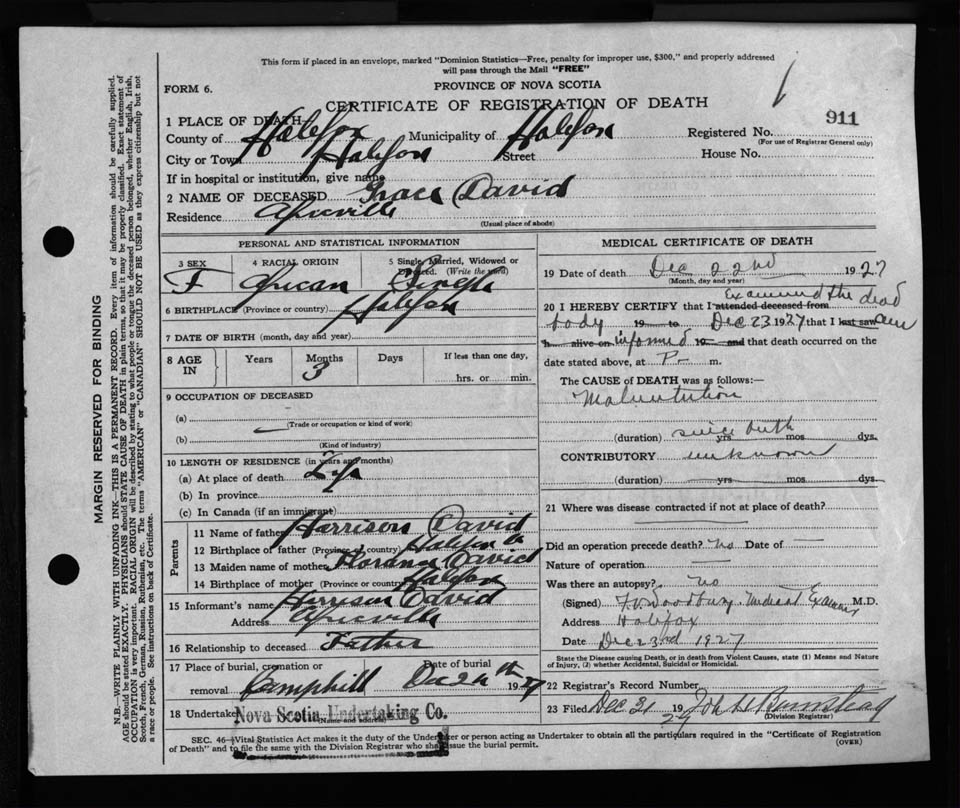 This form if placed in an envelope, marked "Dominion Statistics—Free, penalty for improper use, $300," and properly addressed
will pass through the Mail "FREE"
FORM 6.
PROVINCE OF NOVA SCOTIA
CERTIFICATE OF REGISTRATION OF DEATH
911
1 PLACE OF DEATH
County of Halifax Municipality of Halifax Registered No.
(For use of Registrar General only)
City or Town Halifax Street House No.
If in hospital or institution, give name
2 NAME OF DECEASED Grace David
Residence Africville
(Usual place of abode)
PERSONAL AND STATISTICAL INFORMATION
3 SEX 4 RACIAL ORIGIN 5 Single, Married, Widowed or
Divorced. (Write the word)
F African Single
6 BIRTHPLACE (Province or country) Halifax
7 DATE OF BIRTH (month, day and year)
8 AGE IN Years Months Days If less than one day,
3 hrs. or min.
9 OCCUPATION OF DECEASED
(a)
(Trade or occupation or kind of work)
(b)
(Kind of industry)
10 LENGTH OF RESIDENCE (in years and months)
(a) At place of death Life
(b) In province
(c) In Canada (if an immigrant)
Parents
11 Name of father Harrison David
12 Birthplace of father (Province or country) Halifax
13 Maiden name of mother David
14 Birthplace of mother (Province or country) Halifax
15 Informant's name Harrison David
Address Africville
16 Relationship to deceased Father
17 Place of burial, cremation or Date of burial
removal Camphill Dec 1927
18 Undertaker Nova Scotia Undertaking Co.
(Name and address)
MEDICAL CERTIFICATE OF DEATH
19 Date of death Dec 22nd 1927
(Month, day and year)
20 I HEREBY CERTIFY that I attended deceased from examined the dead
body 19 to Dec 23 1927 that I last saw am
h alive on informed 19 and that death occurred on the
date stated above, at P- m.
The CAUSE of DEATH was as follows:—
Malnutrition
(duration) since birth yrs mos dys.
CONTRIBUTORY unknown
(duration) yrs mos dys.
21 Where was disease contracted if not at place of death?
Did an operation precede death? no Date of —
Nature of operation —
Was there an autopsy? no
(Signed) F.V. Woodbury. Medical Examiner M.D.
Address Halifax
Date Dec 23rd 1927
State the Disease causing Death, or in death from Violent Causes, state (1) Means and Nature
of Injury, (2) whether Accidental, Suicidal or Homicidal.
22 Registrar's Record Number
23 Filed Dec 31 1927 John
(Division Registrar)
SEC. 46—Vital Statistics Act makes it the duty of the Undertaker or person acting as Undertaker to obtain all the particulars required in the "Certificate of Registration
of Death" and to file the same with the Division Registrar who shall issue the burial permit.
(OVER)
MARGIN RESERVED FOR BINDING
N.B.—WRITE PLAINLY WITH UNFADING INK—THIS IS A PERMANENT RECORD. Every item of information should be carefully supplied.
AGE should be stated EXACTLY. PHYSICIANS should STATE CAUSE OF DEATH in plain terms, so that it may be properly classified. Exact statement of
OCCUPATION is very important. RACIAL ORIGIN will be described by stating to what people or tongue the deceased person belonged, whether English, Irish,
Scotch, French, German, Russian, Ruthenian, etc. The terms "AMERICAN" or "CANADIAN" SHOULD NOT BE USED as they express citizenship but not
a race or people. See instructions on back of Certificate.